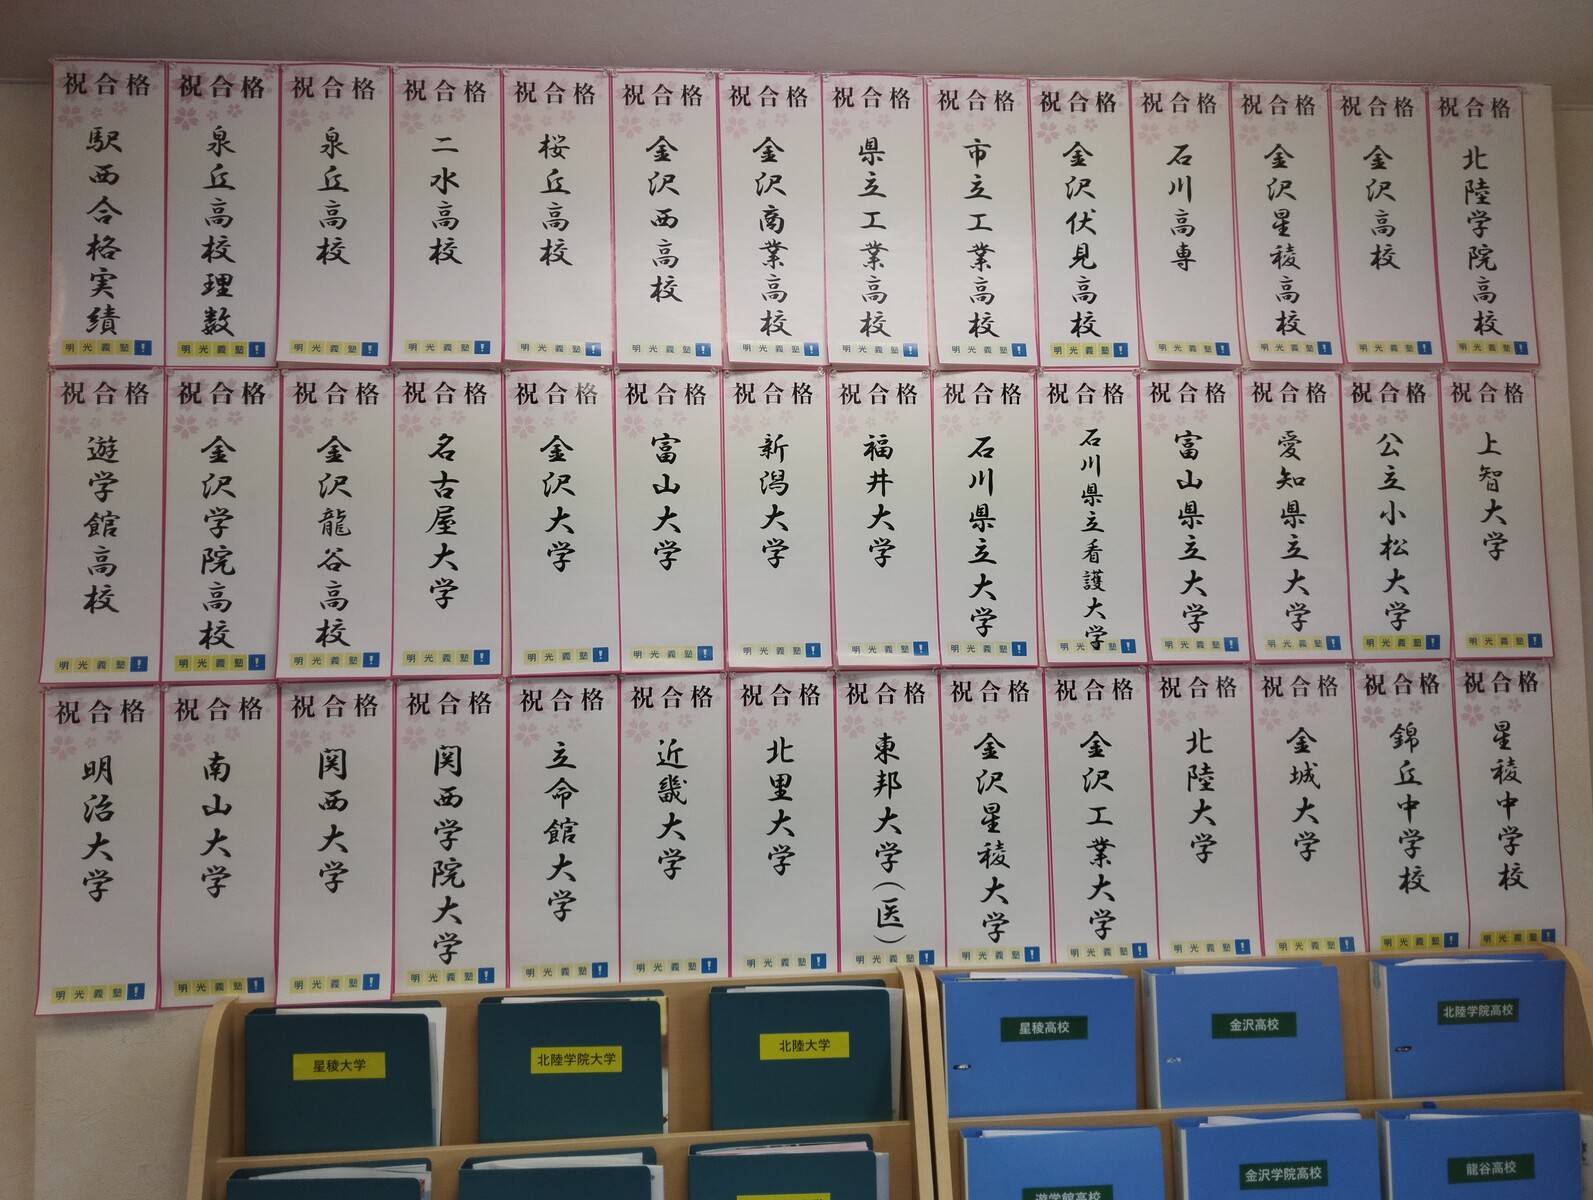 祝合格
駅西合格実績
明光義塾!
祝合格
泉丘高校理数
明光義塾!
祝合格
泉丘高校
明光義塾!
祝合格
二水高校
明光義塾!
祝合格
桜丘高校
明光義塾!
祝合格
金沢西高校
明光義塾!
祝合格
金沢商業高校
明光義塾!
祝合格
県立工業高校
明光義塾!
祝合格
市立工業高校
明光義塾!
祝合格
金沢伏見高校
明光義塾!
祝合格
石川高専
明光義塾!
祝合格
金沢星稜高校
明光義塾!
祝合格
金沢高校
明光義塾!
祝合格
北陸学院高校
明光義塾!
祝合格
遊学館高校
明光義塾!
祝合格
金沢学院高校
明光義塾!
祝合格
金沢龍谷高校
明光義塾!
祝合格
名古屋大学
明光義塾!
祝合格
金沢大学
明光義塾!
祝合格
富山大学
明光義塾!
祝合格
新潟大学
明光義塾!
祝合格
福井大学
明光義塾!
祝合格
石川県立大学
明光義塾!
祝合格
石川県立看護大学
明光義塾!
祝合格
富山県立大学
明光義塾!
祝合格
愛知県立大学
明光義塾!
祝合格
公立小松大学
明光義塾!
祝合格
上智大学
明光義塾!
祝合格
明治大学
明光義塾!
祝合格
南山大学
明光義塾!
祝合格
関西大学
明光義塾!
祝合格
関西学院大学
明光義塾!
祝合格
立命館大学
明光義塾!
祝合格
近畿大学
明光義塾!
祝合格
北里大学
明光義塾!
祝合格
東邦大学(医)
明光義塾!
祝合格
金沢星稜大学
明光義塾!
祝合格
金沢工業大学
明光義塾!
祝合格
北陸大学
明光義塾!
祝合格
金城大学
明光義塾!
祝合格
錦丘中学校
明光義塾!
祝合格
星稜中学校
明光義塾!
星稜大学
北陸学院大学
北陸大学
星稜高校
金沢高校
北陸学院高校
遊学館高校
金沢学院高校
龍谷高校